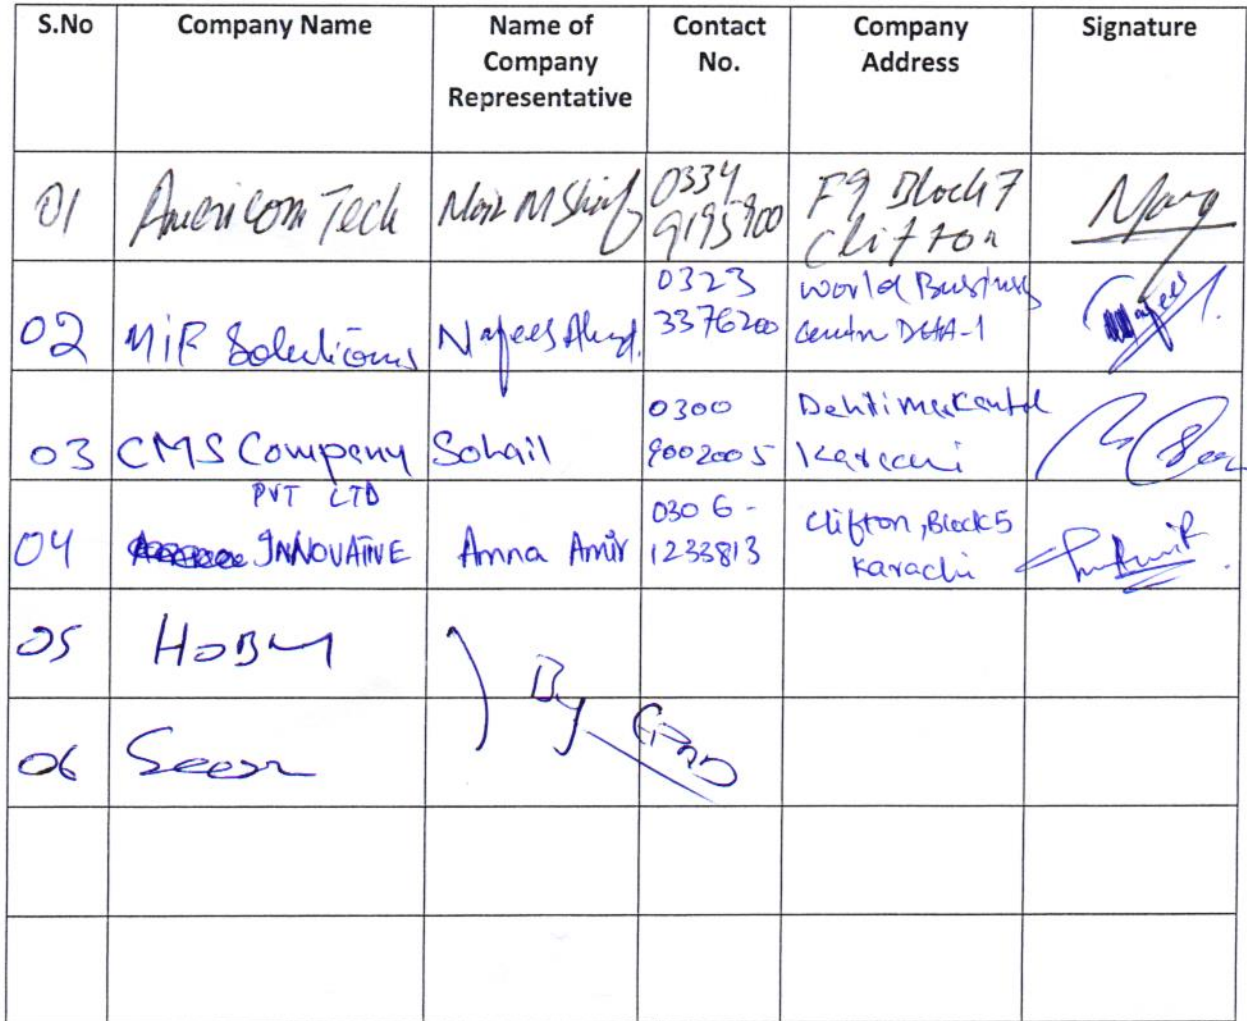 S.No Company Name Name of Company Representative Contact No. Company Address Signature
01 Americom Tech 0334 9195900 F9 Block 7 Clifton
02 MiR Solutions Nafees Ahmd. 0323 3376200 World Business DHA-1 Nafees
03 CMS Company Sohail 0300 9002005 Karachi
04 PVT LTD INNOVATIVE Amna Amir 0306-1233813 Clifton, Block 5 Karachi
05 HOBM
06 By